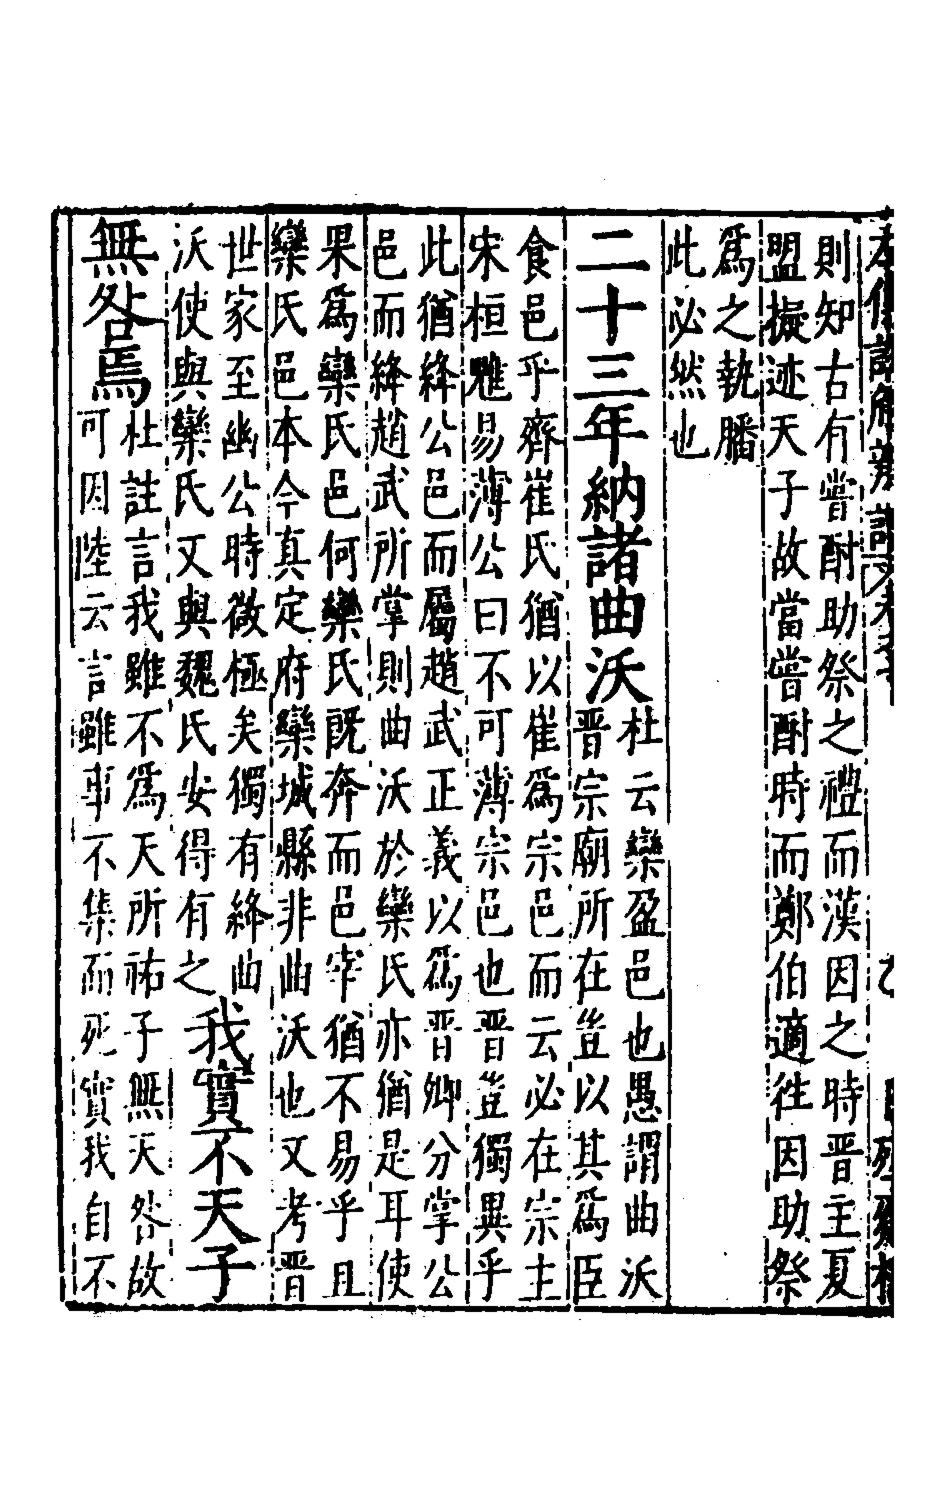 則知古有嘗酎助祭之禮而漢因之時晋主夏
盟擬迹天子故當嘗酎時而鄭伯適徃因助祭
爲之執膰
此必然也
二十三年納諸曲沃
杜云欒盈邑也愚謂曲沃
晋宗廟所在豈以其爲臣
食邑乎齊崔氏猶以崔爲宗邑而云必在宗主
宋桓魋易薄公曰不可薄宗邑也晋豈獨異乎
此猶絳公邑而屬趙武正義以爲晋卿分掌公
邑而絳趙武所掌則曲沃於欒氏亦猶是耳使
果爲欒氏邑何欒氏旣奔而邑宰猶不易乎且
欒氏邑本今真定府欒城縣非曲沃也又考晋
世家至幽公時微極矣獨有絳曲
沃使與欒氏又與魏氏安得有之
我實不天子
無咎焉
杜註言我雖不爲天所祐子無天咎故
可因陸云言雖事不集而死實我自不